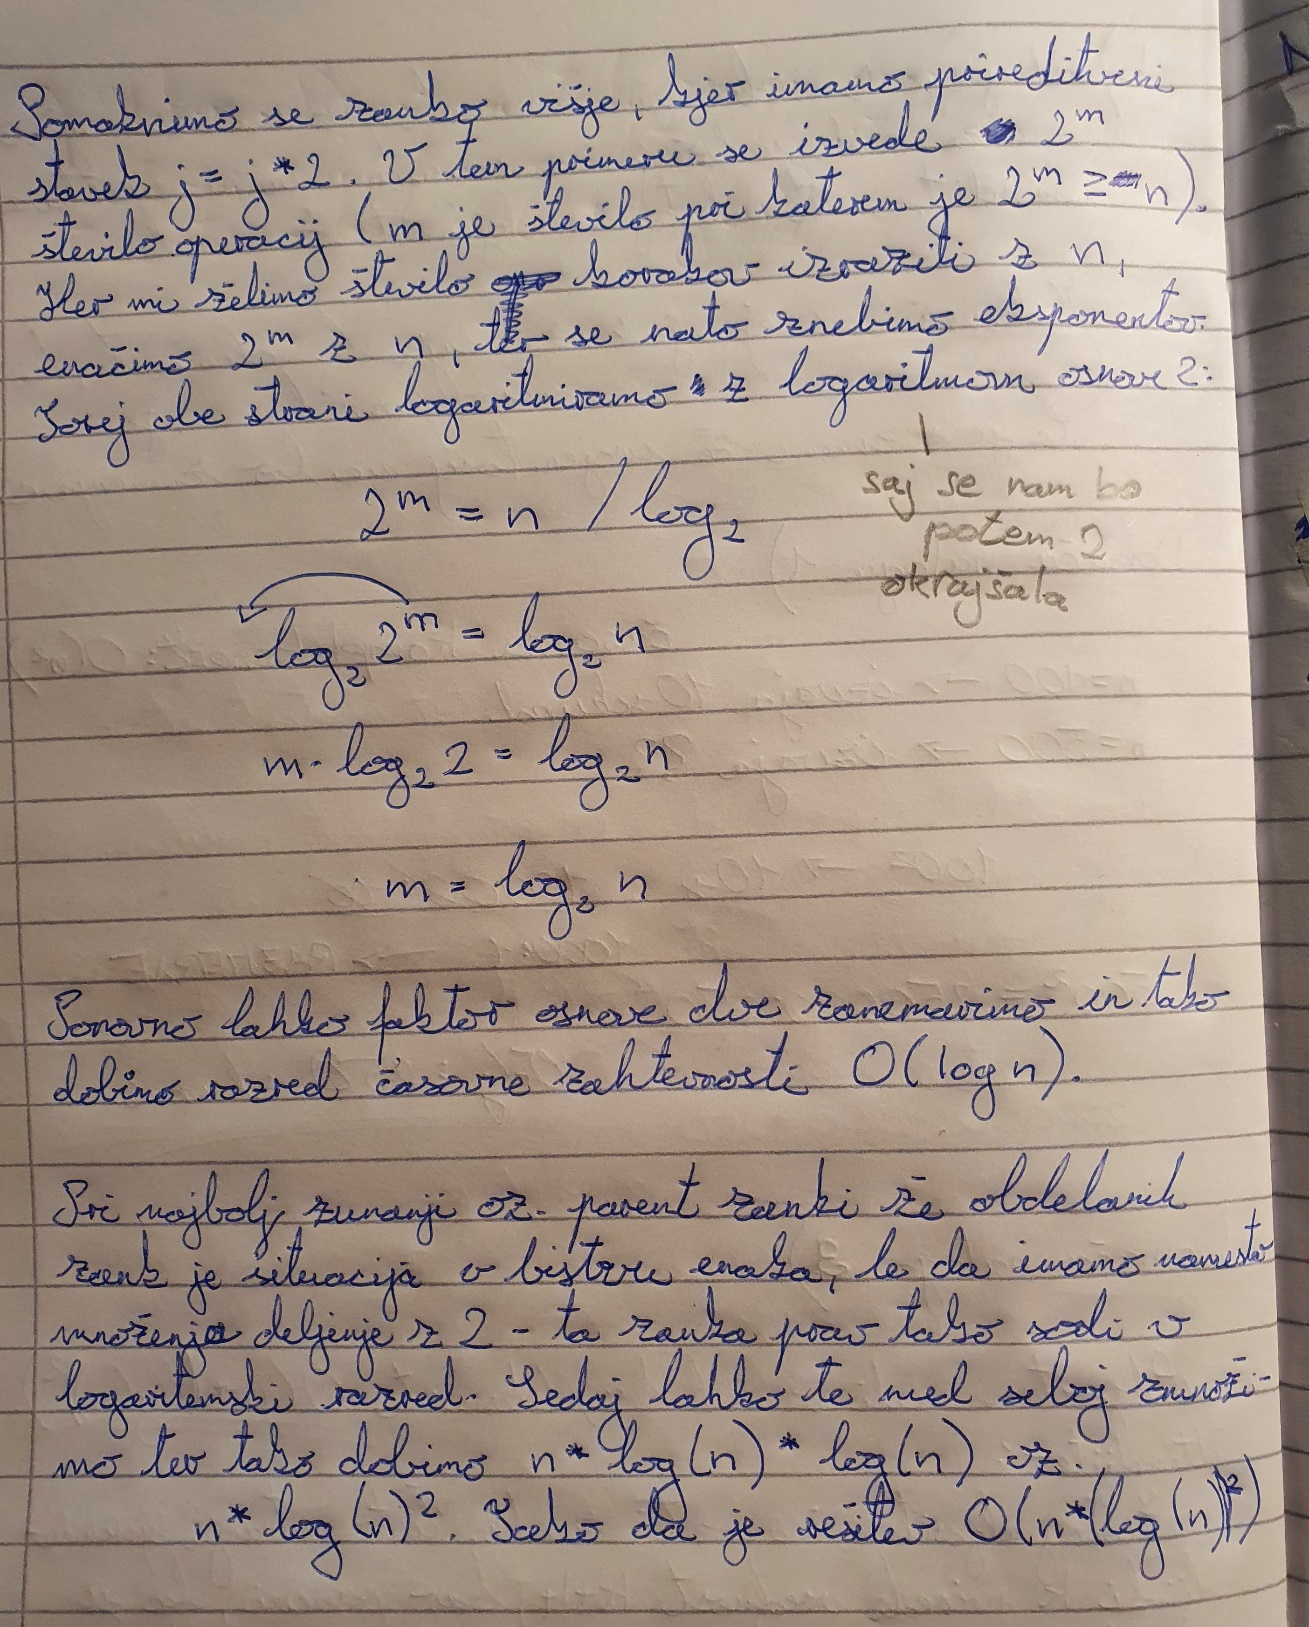 Pomaknimo se zanko višje, kjer imamo prireditveni
stavek j = j*2. V tem primeru se izvede 2^m
število operacij (m je število pri katerem je 2^m ≥ n).
Ker mi želimo število korakov izraziti z n,
enačimo 2^m z n, ter se nato znebimo eksponentov.
Torej obe strani logaritmiramo z logaritmom osnove 2:
|
saj se nam bo
potem 2
okrajšala
2^m = n / log₂
log₂ 2^m = log₂ n
m · log₂ 2 = log₂ n
m = log₂ n
Ponovno lahko faktor osnove dve zanemarimo in tako
dobimo razred časovne zahtevnosti O(log n).
Pri najbolj zunanji oz. parent zanki že obdelanih
zank je situacija v bistvu enaka, le da imamo namesto
množenja deljenje z 2 - ta zanka prav tako sodi v
logaritemski razred. Sedaj lahko te med seboj zmnoži-
mo ter tako dobimo n * log(n) * log(n) oz.
n * log(n)². Tako da je rešitev O(n*(log(n))²)